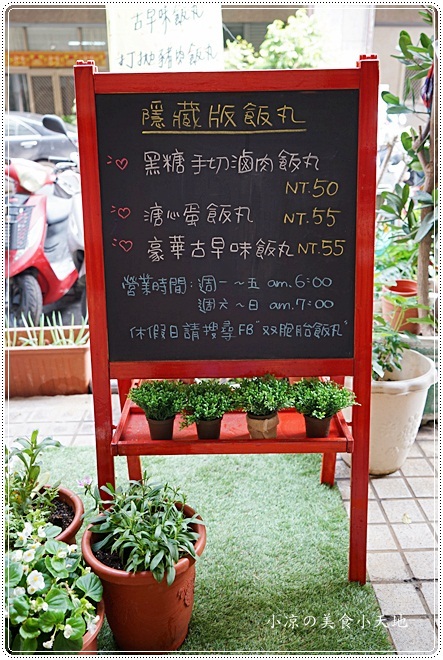 古早味飯丸
打拋豬肉飯丸
隱藏版飯丸
黑糖手切滷肉飯丸
NT.50
溏心蛋飯丸 NT.55
豪華古早味飯丸 NT.55
營業時間：週一～五 am.6:00
週六～日 am.7:00
休假日請搜尋FB"双肥胎飯丸"
小凉の美食小天地